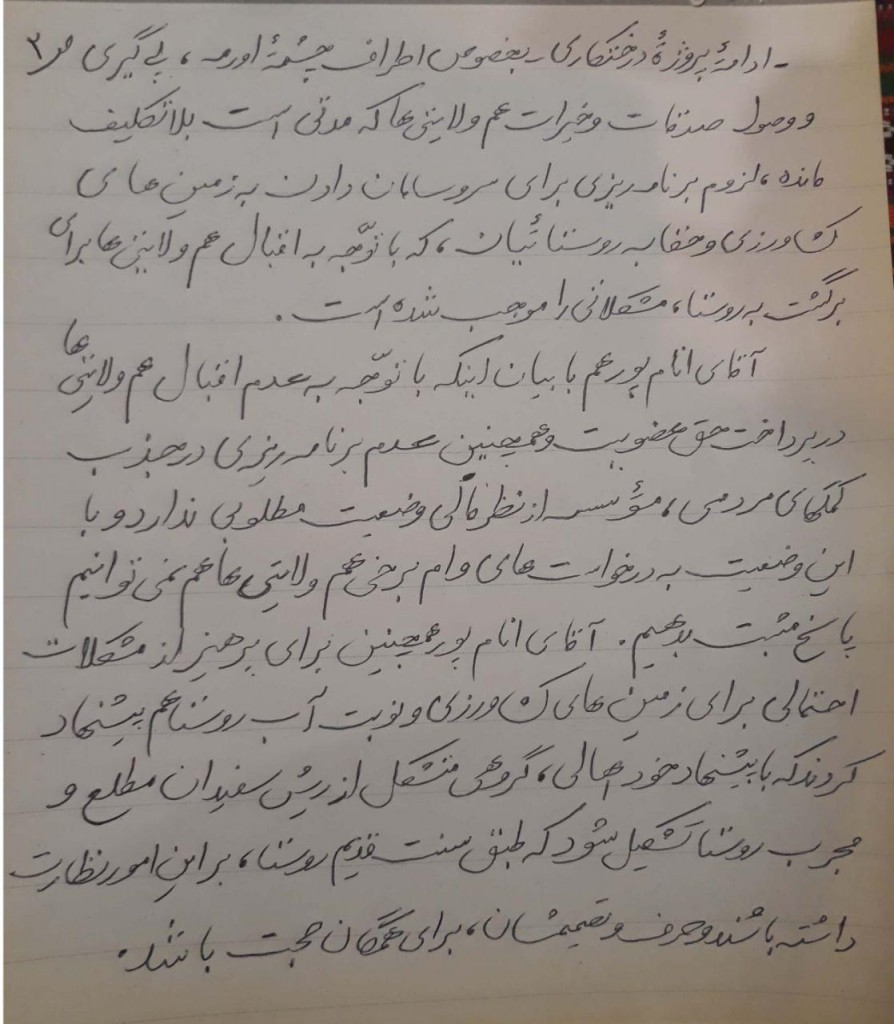 - ادامهٔ پروژهٔ درختکاری بخصوص اطراف چشمهٔ اورمه، پی گیری ص۳
و وصول صدقات و خیرات هم ولایتی ها که مدتی است بلاتکلیف
مانده، لزوم برنامه ریزی برای سروسامان دادن به زمین های
کشاورزی و حقابه روستائیان، که با توجّه به اقبال هم ولایتی ها برای
برگشت به روستا، مشکلاتی را موجب شده است.
آقای انام پور هم با بیان اینکه با توجّه به عدم اقبال هم ولایتی ها
در پرداخت حق عضویت و همچنین عدم برنامه ریزی در جذب
کمکهای مردمی، مؤسسه از نظر مالی وضعیت مطلوبی ندارد و با
این وضعیت به درخواست های وام برخی هم ولایتی ها هم نمی توانیم
پاسخ مثبت بدهیم. آقای انام پور همچنین برای پرهیز از مشکلات
احتمالی برای زمین های کشاورزی و نوبت آب روستا هم پیشنهاد
کردند که با پیشنهاد خود اهالی، گروهی متشکل از ریش سفیدان مطلع و
مجرب روستا تشکیل شود که طبق سنت قدیم روستا، بر این امور نظارت
داشته باشند و حرف و تصمیمشان، برای همگان حجت باشد.